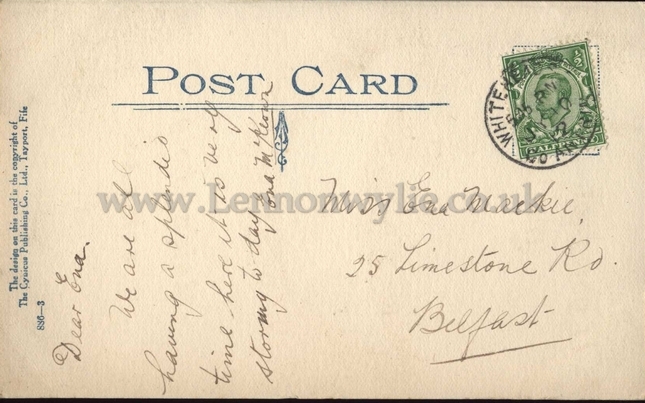 POST CARD
The design on this card is the copyright of
The Cynicus Publishing Co., Ltd., Tayport, Fife
886—3
Dear Ena.
We are all
having a splendid
time here it is very
stormy to day Ena McKeown
Miss Ena Mackie,
25 Limestone Rd.
Belfast
WHITEHEAD
CO ANTRIM
HALFPENNY
www.Lennonwylie.co.uk